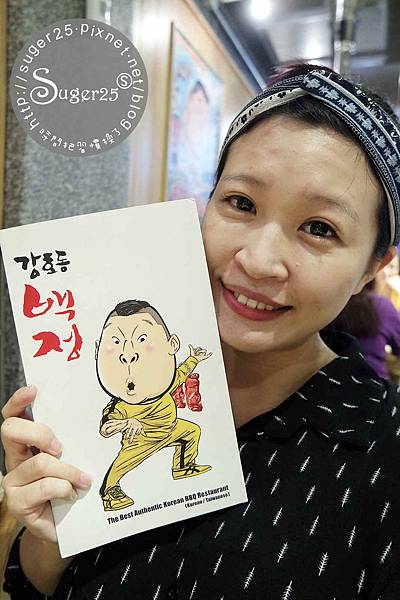 http://suger25.pixnet.net/blog
Suger25
강호동
백정
The Best Authentic Korean BBQ Restaurant
(Korean / Taiwanese)